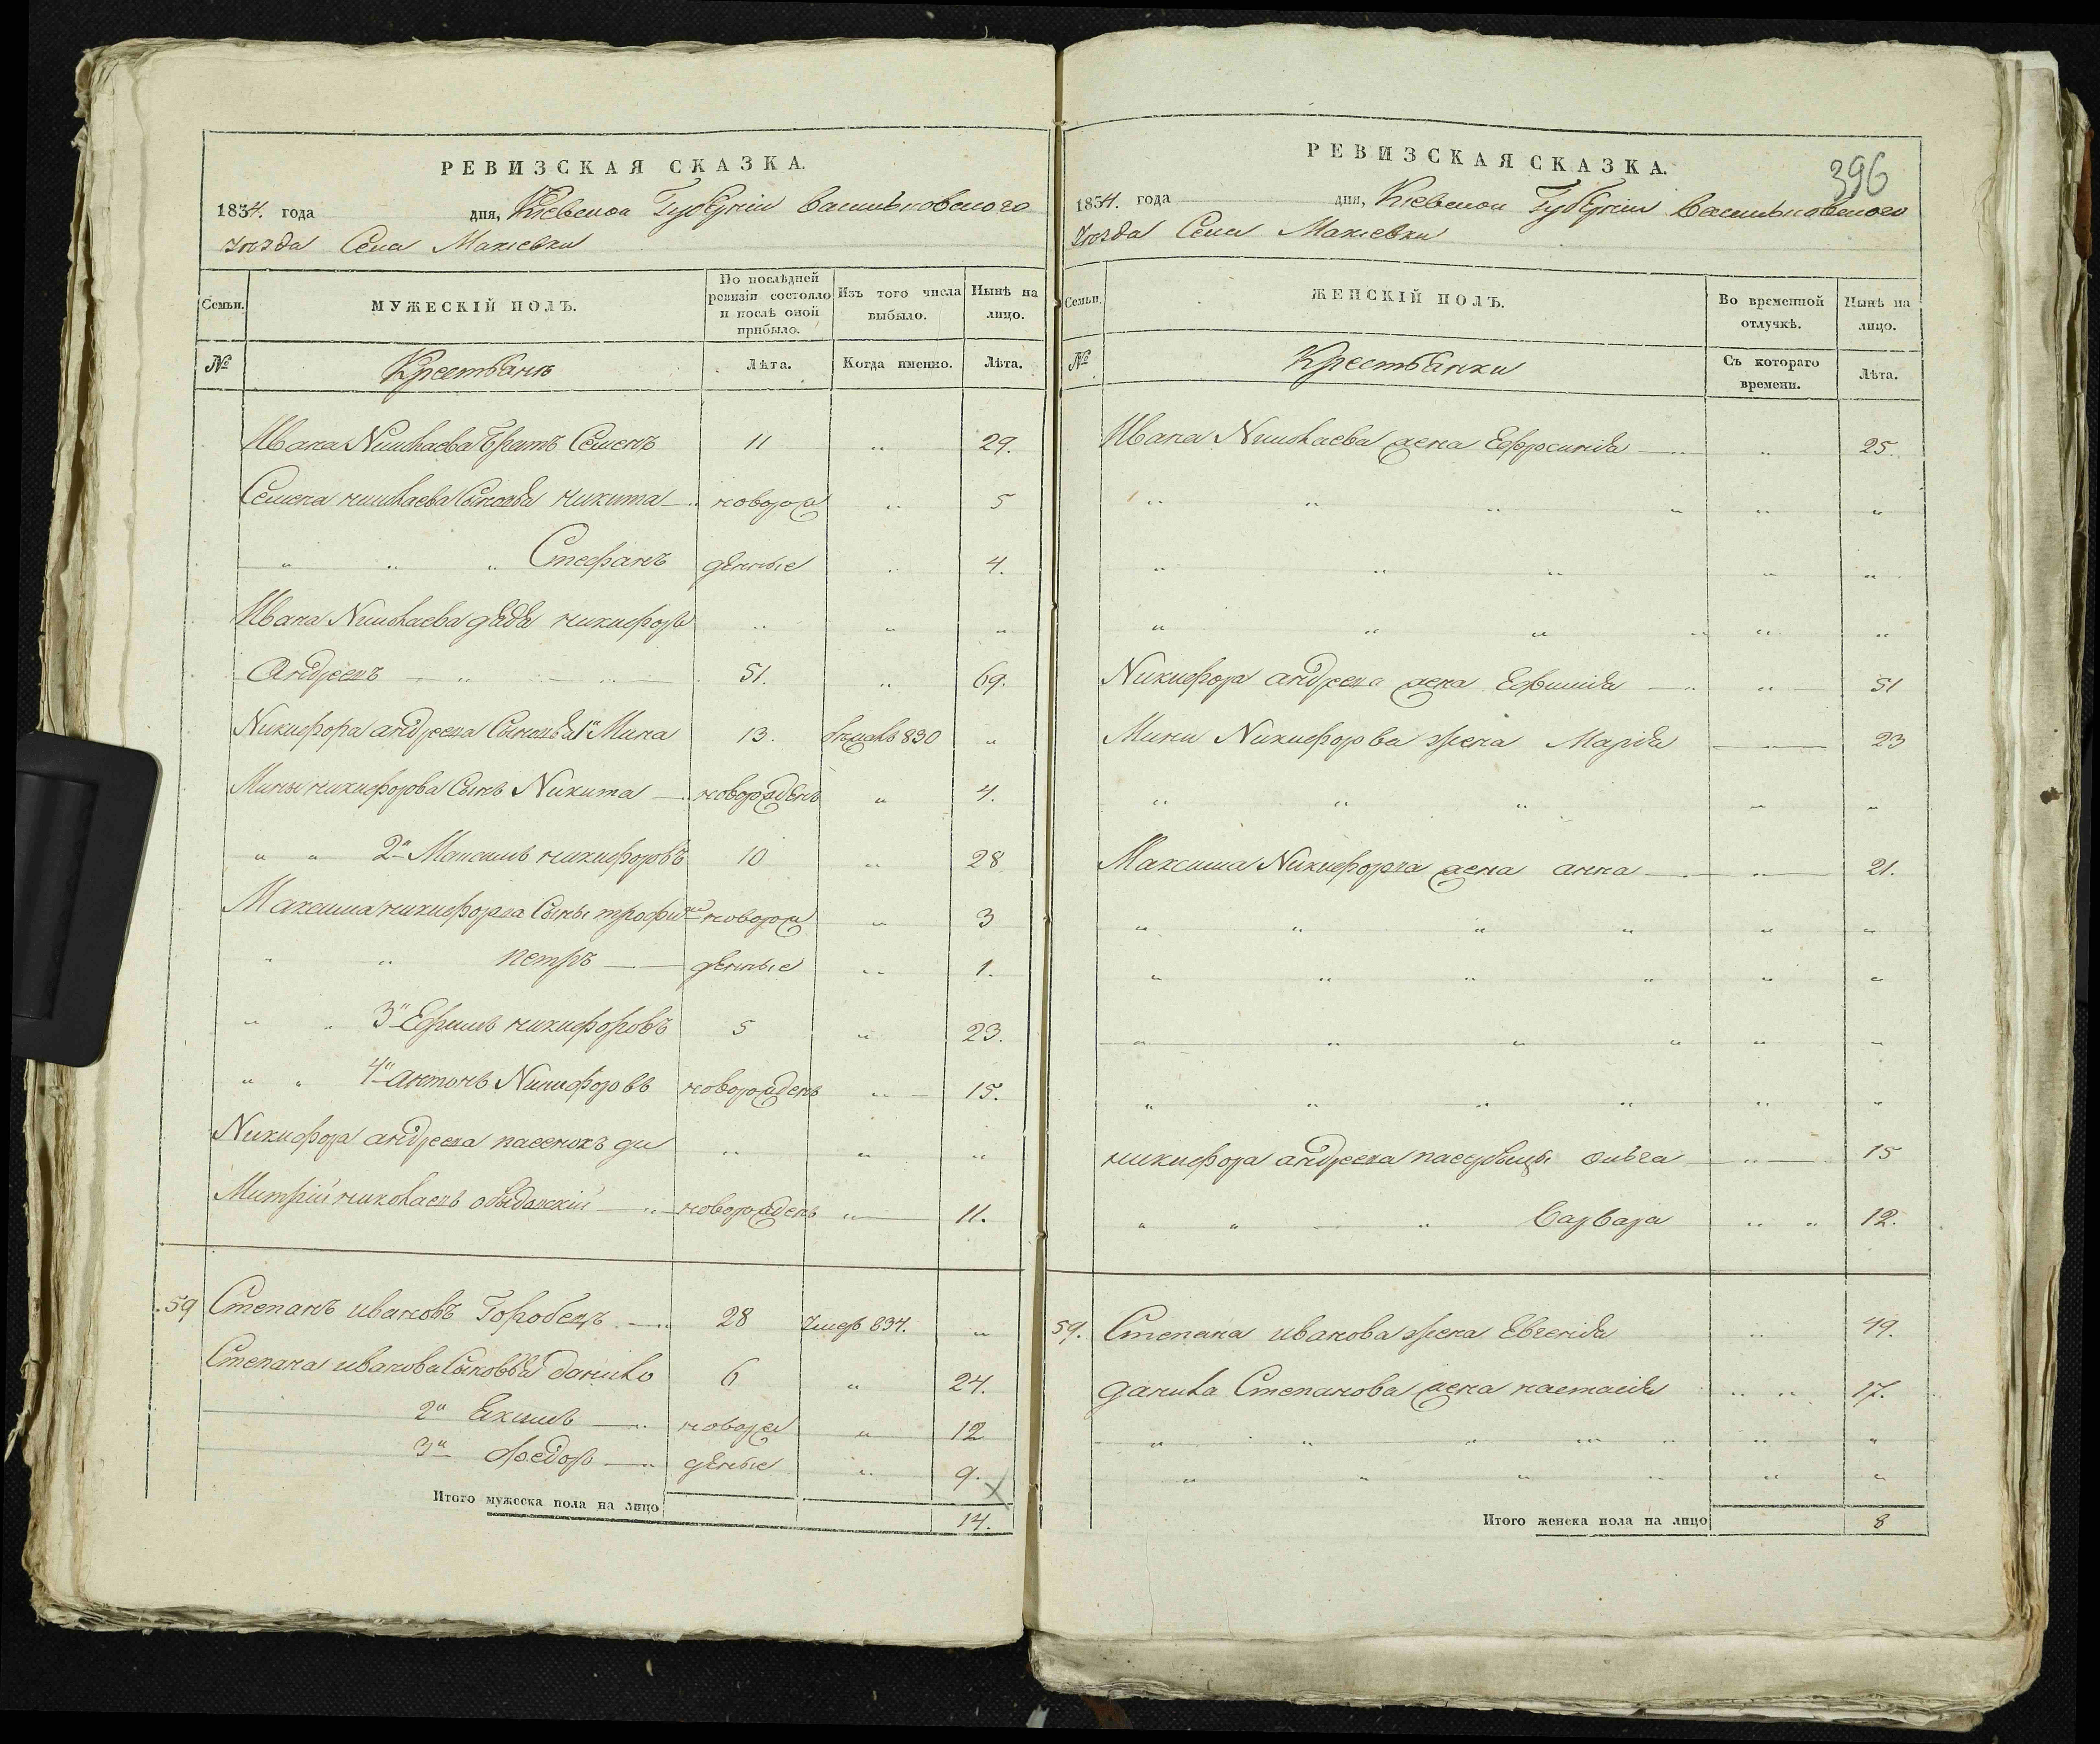 РЕВИЗСКАЯ СКАЗКА.
1834. года дня, Киевской Губерніи Васильковского
уезда Села Макіевки
Семьи. МУЖЕСКІЙ ПОЛЪ. По послѣдней ревизіи состояло и послѣ оной прибыло. Изъ того числа выбыло. Нынѣ на лицо.
№ Крестьянѣ Лѣта. Когда именно. Лѣта.
Ивана Николаева братъ Семенъ 11 " 29.
Семена николаева Сыновья никита — новорож " 5
" " " Стефанъ денные " 4.
Ивана Николаева дядя никифоръ " " "
Андреевъ " " 51. " 69.
Никифора андреева Сыновья 1й Мина 13. 830 "
Мины никифорова Сынъ Никита — новорожденъ " 4.
" " 2й Максимъ никифоровъ 10 " 28
Максима никифорова Сыны трофимъ новорож " 3
" " петръ — денные " 1.
" " 3й Ефимъ никифоровъ 5 " 23.
" " 4й антонъ Никифоровъ новорожденъ " 15.
Никифора андреева пасенокъ ди " " "
Митрій николаевъ — новорожденъ " 11.
59 Степанъ ивановъ Горобецъ — 28 умеръ 834. "
Степана иванова Сыновья данило 6 " 24.
2й Екимъ — новорож " 12
3й Федоръ — денные " 9.
Итого мужеска пола на лицо 14.
396
РЕВИЗСКАЯ СКАЗКА.
1834. года дня, Киевской Губерніи Васильковского
уезда Села Макіевки
Семьи. ЖЕНСКІЙ ПОЛЪ. Во временной отлучкѣ. Нынѣ на лицо.
№ Крестьянки Съ котораго времени. Лѣта.
Ивана Николаева жена Ефросинія — " 25.
" " " " " "
" " " " "
" " " " " "
Никифора андреева жена Ефимія — " 51
Мины Никифорова жена Марія — 23
" " " " "
Максима Никифорова жена анна — " 21.
" " " " " "
" " " " " "
" " " " " "
" " " " " "
никифора андреева падчерицы олѣга — " 15
" " " Варвара " " 12.
59. Степана иванова жена Евгенія " 49.
данила Степанова жена настасія " " 17.
" " " " " " "
" " " " " "
Итого женска пола на лицо 8